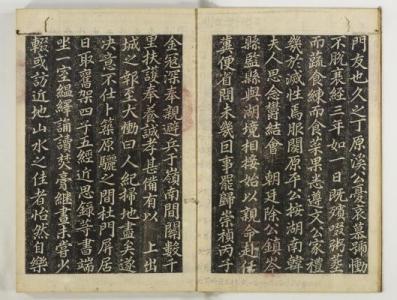 門友也久之丁原溪公憂哀慕踊慟
不脫衰絰三年如一日既殯啜粥葬
而蔬食練而食菜果悉遵文公家禮
幾於滅性焉服闋原平公按湖南韓
夫人思念欝結會 朝廷除公鎮岑
縣監縣與湖境相接始以親命赴任
冀便省問未幾因事罷歸崇禎丙子
金冦深奉親避兵于嶺南間關數千
里扶護奉養誠孝甚備有以 上出
城之報至大慟曰人紀掃地盡矣遂
决意不仕卜築原驪之間杜門屏居
日取舊架四子五經近思錄等書端
坐一室縕繹誦讀焚膏繼晷未嘗少
輟或訪近地山水之佳者怡然自樂